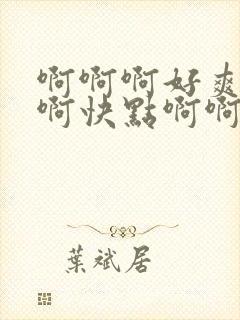 啊啊啊好爽
啊快點啊啊
葉斌居